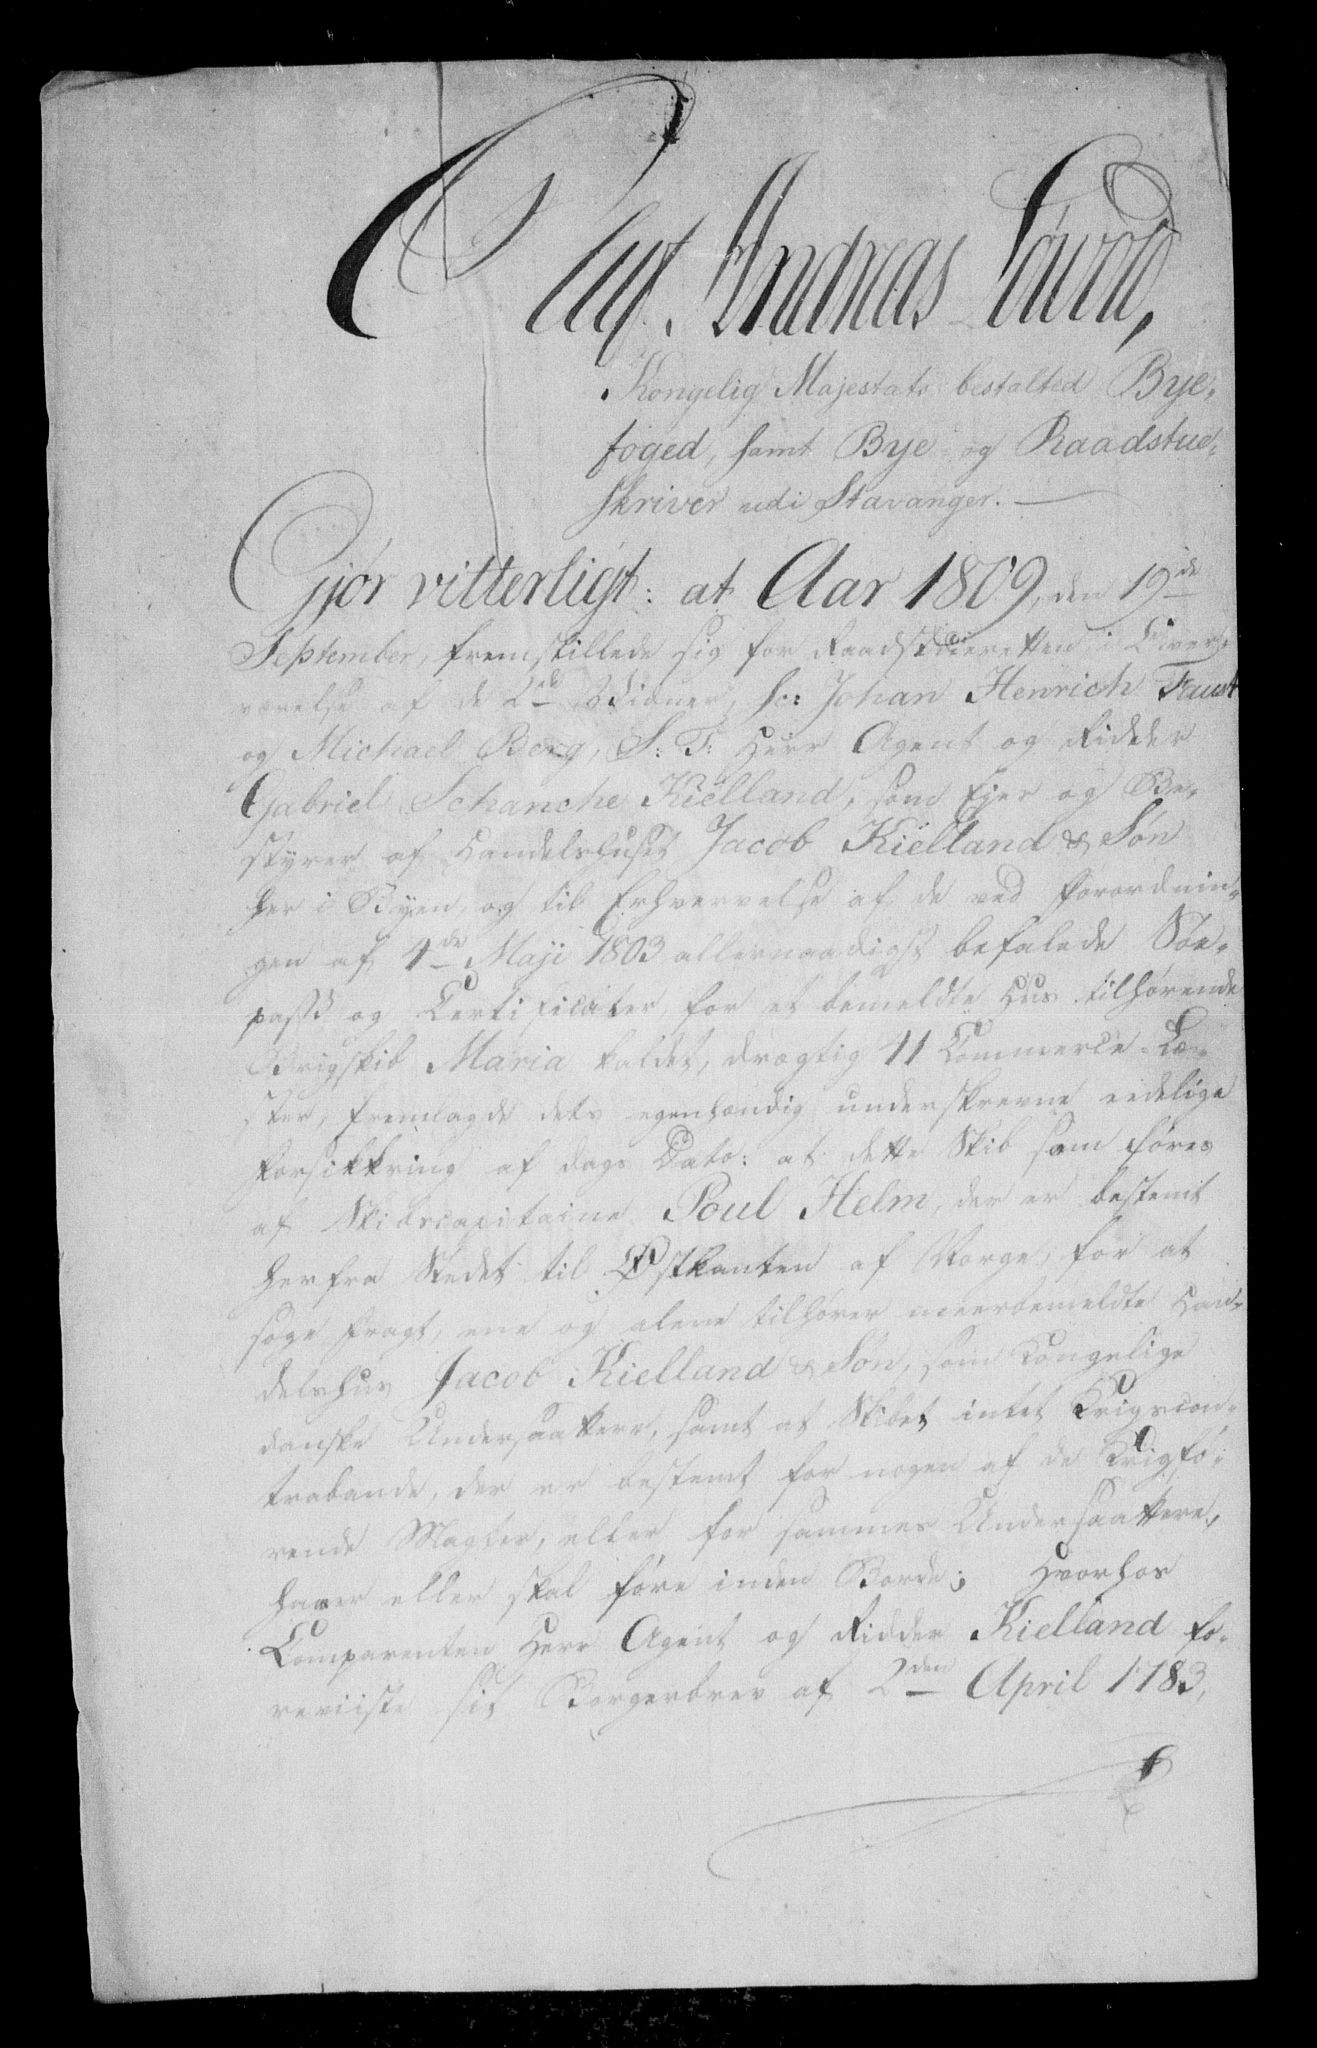 Oluf Andreas Løwold,
Kongelig Majestæts bestalted Bye-
foged, samt Bye- og Raadstue-
skriver udi Stavanger. —
Gjör vitterligt: at Aar 1809, den 19de
September, fremstillede sig for Raadstueretten i Over-
værelse af de 2de Vidner, sc: Johan Henrich Faust
og Michael Berg, S: T: Herr Agent og Ridder
Gabriel Schanche Kiëlland, som Ejer og Be-
styrer af Handelshuset Jacob Kiëlland & Søn
her i Byen, og til Erhvervelse af de ved Forordnin-
gen af 1de Maji 1803 allernaadigst befalede Søe-
passe og Certificater, for et bemeldte Hus tilhørende
Brigskib Maria kaldet, drægtig 11 Commerce-Læ-
ster, fremlagde dets egenhændig underskrevne eedelige
Forsikkring af dags Dato: at dette Skib som føres
af Skibscapitaine Poul Helm, der er bestemt
herfra Stedet til Østkanten af Norge, for at
søge Fragt, ene og alene tilhører meerbemeldte Han-
delshus Jacob Kielland & Søn, som Kongelige
danske Undersaattere, samt at Skibet intet Krigscon-
trabande, der er bestemt for nogen af de Krigfö-
rende Magter, eller for sammes Undersaattere,
haver eller skal føre inden Borde; Hvorhos
Comparenten Herr Agent og Ridder Kielland fo-
reviiste sit Borgerbrev af 2den April 1783,